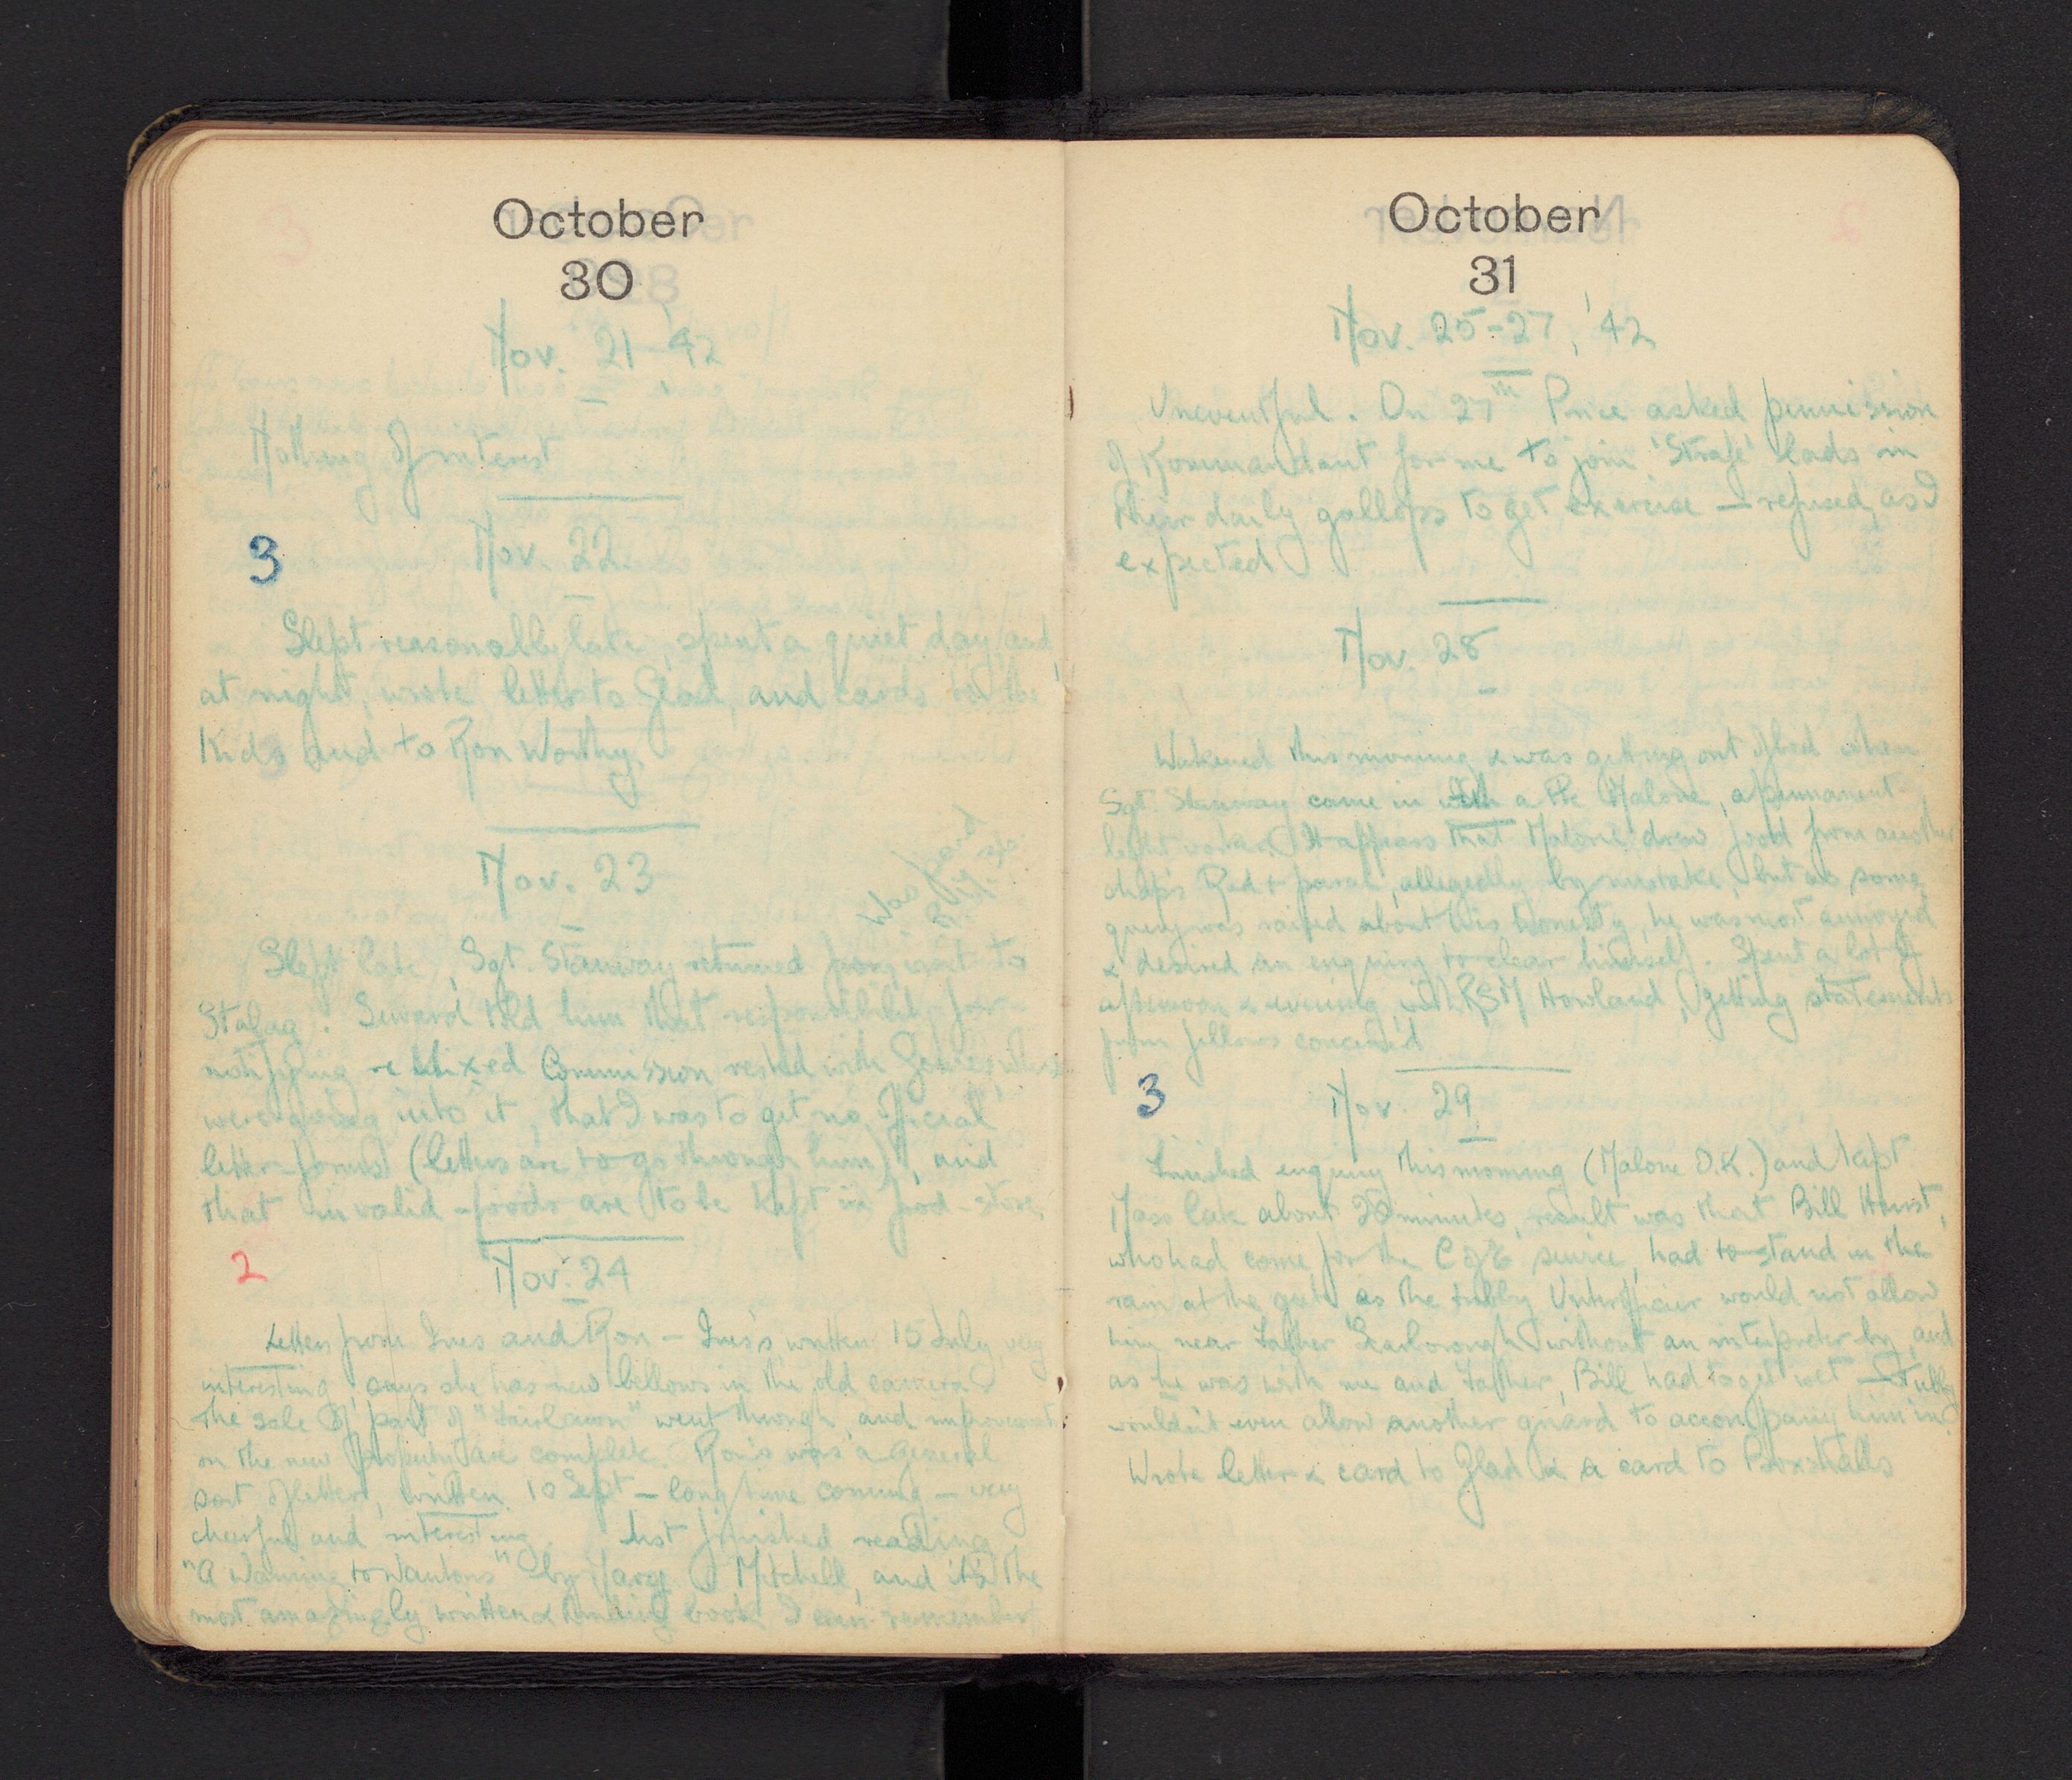 October
30
Nov. 21 - 42
Nothing of interest
3
Nov. 22
Slept reasonably late, spent a quiet day, and
at night, wrote letter to Glad, and cards to the
Kids and to Ron Worthy.
Nov. 23
Was paid
Slept late, Sgt. Stanway returned from visit to
Stalag. Seward told him that responsibility for
notifying re Mixed Commission rested with
were going into it, that I was to get no official
letter-forms (letters are to go through him), and
that invalid-foods are to be kept in food-store.
2
Nov. 24
Letters from Ines and Ron - Ines's written 15 July, very
interesting, says she has new bellows in the old camera
The sale of part of "Fairlawn" went through, and improvements
on the new property are complete. Ron's was a general
sort of letter, written 10 Sept - long time coming - very
cheerful and interesting. Just finished reading
"A Warning to Wantons" by Mary Mitchell, and it's the
most amazingly written & book I can remember
October
31
Nov. 25-27, '42
Uneventful. On 27th Price asked permission
of Kommandant for me to join 'Strafe' lads in
their daily gallops to get exercise - refused, as I
expected
Nov. 28
Wakened this morning & was getting out of bed when
Sgt. Stanway came in with a Pte Malone, a permanent
light worker. It appears that Malone drew food from another
chap's Red + parcel, allegedly by mistake, but as some
query was raised about his honesty, he was most annoyed
& desired an enquiry to clear himself. Spent a lot of
afternoon & evening with RSM Howland, getting statements
from fellows concerned
3
Nov. 29
Finished enquiry this morning (Malone O.K.) and kept
Mass late about 20 minutes, result was that Bill Hurst,
who had come for the C of E service, had to stand in the
rain at the gate as the tubby Unteroffizier would not allow
him near Father Scarborough without an interpreter by, and
as he was with me and Father, Bill had to get wet - Tubby
wouldn't even allow another guard to accompany him in.
Wrote letter & card to Glad & a card to Boxshalls